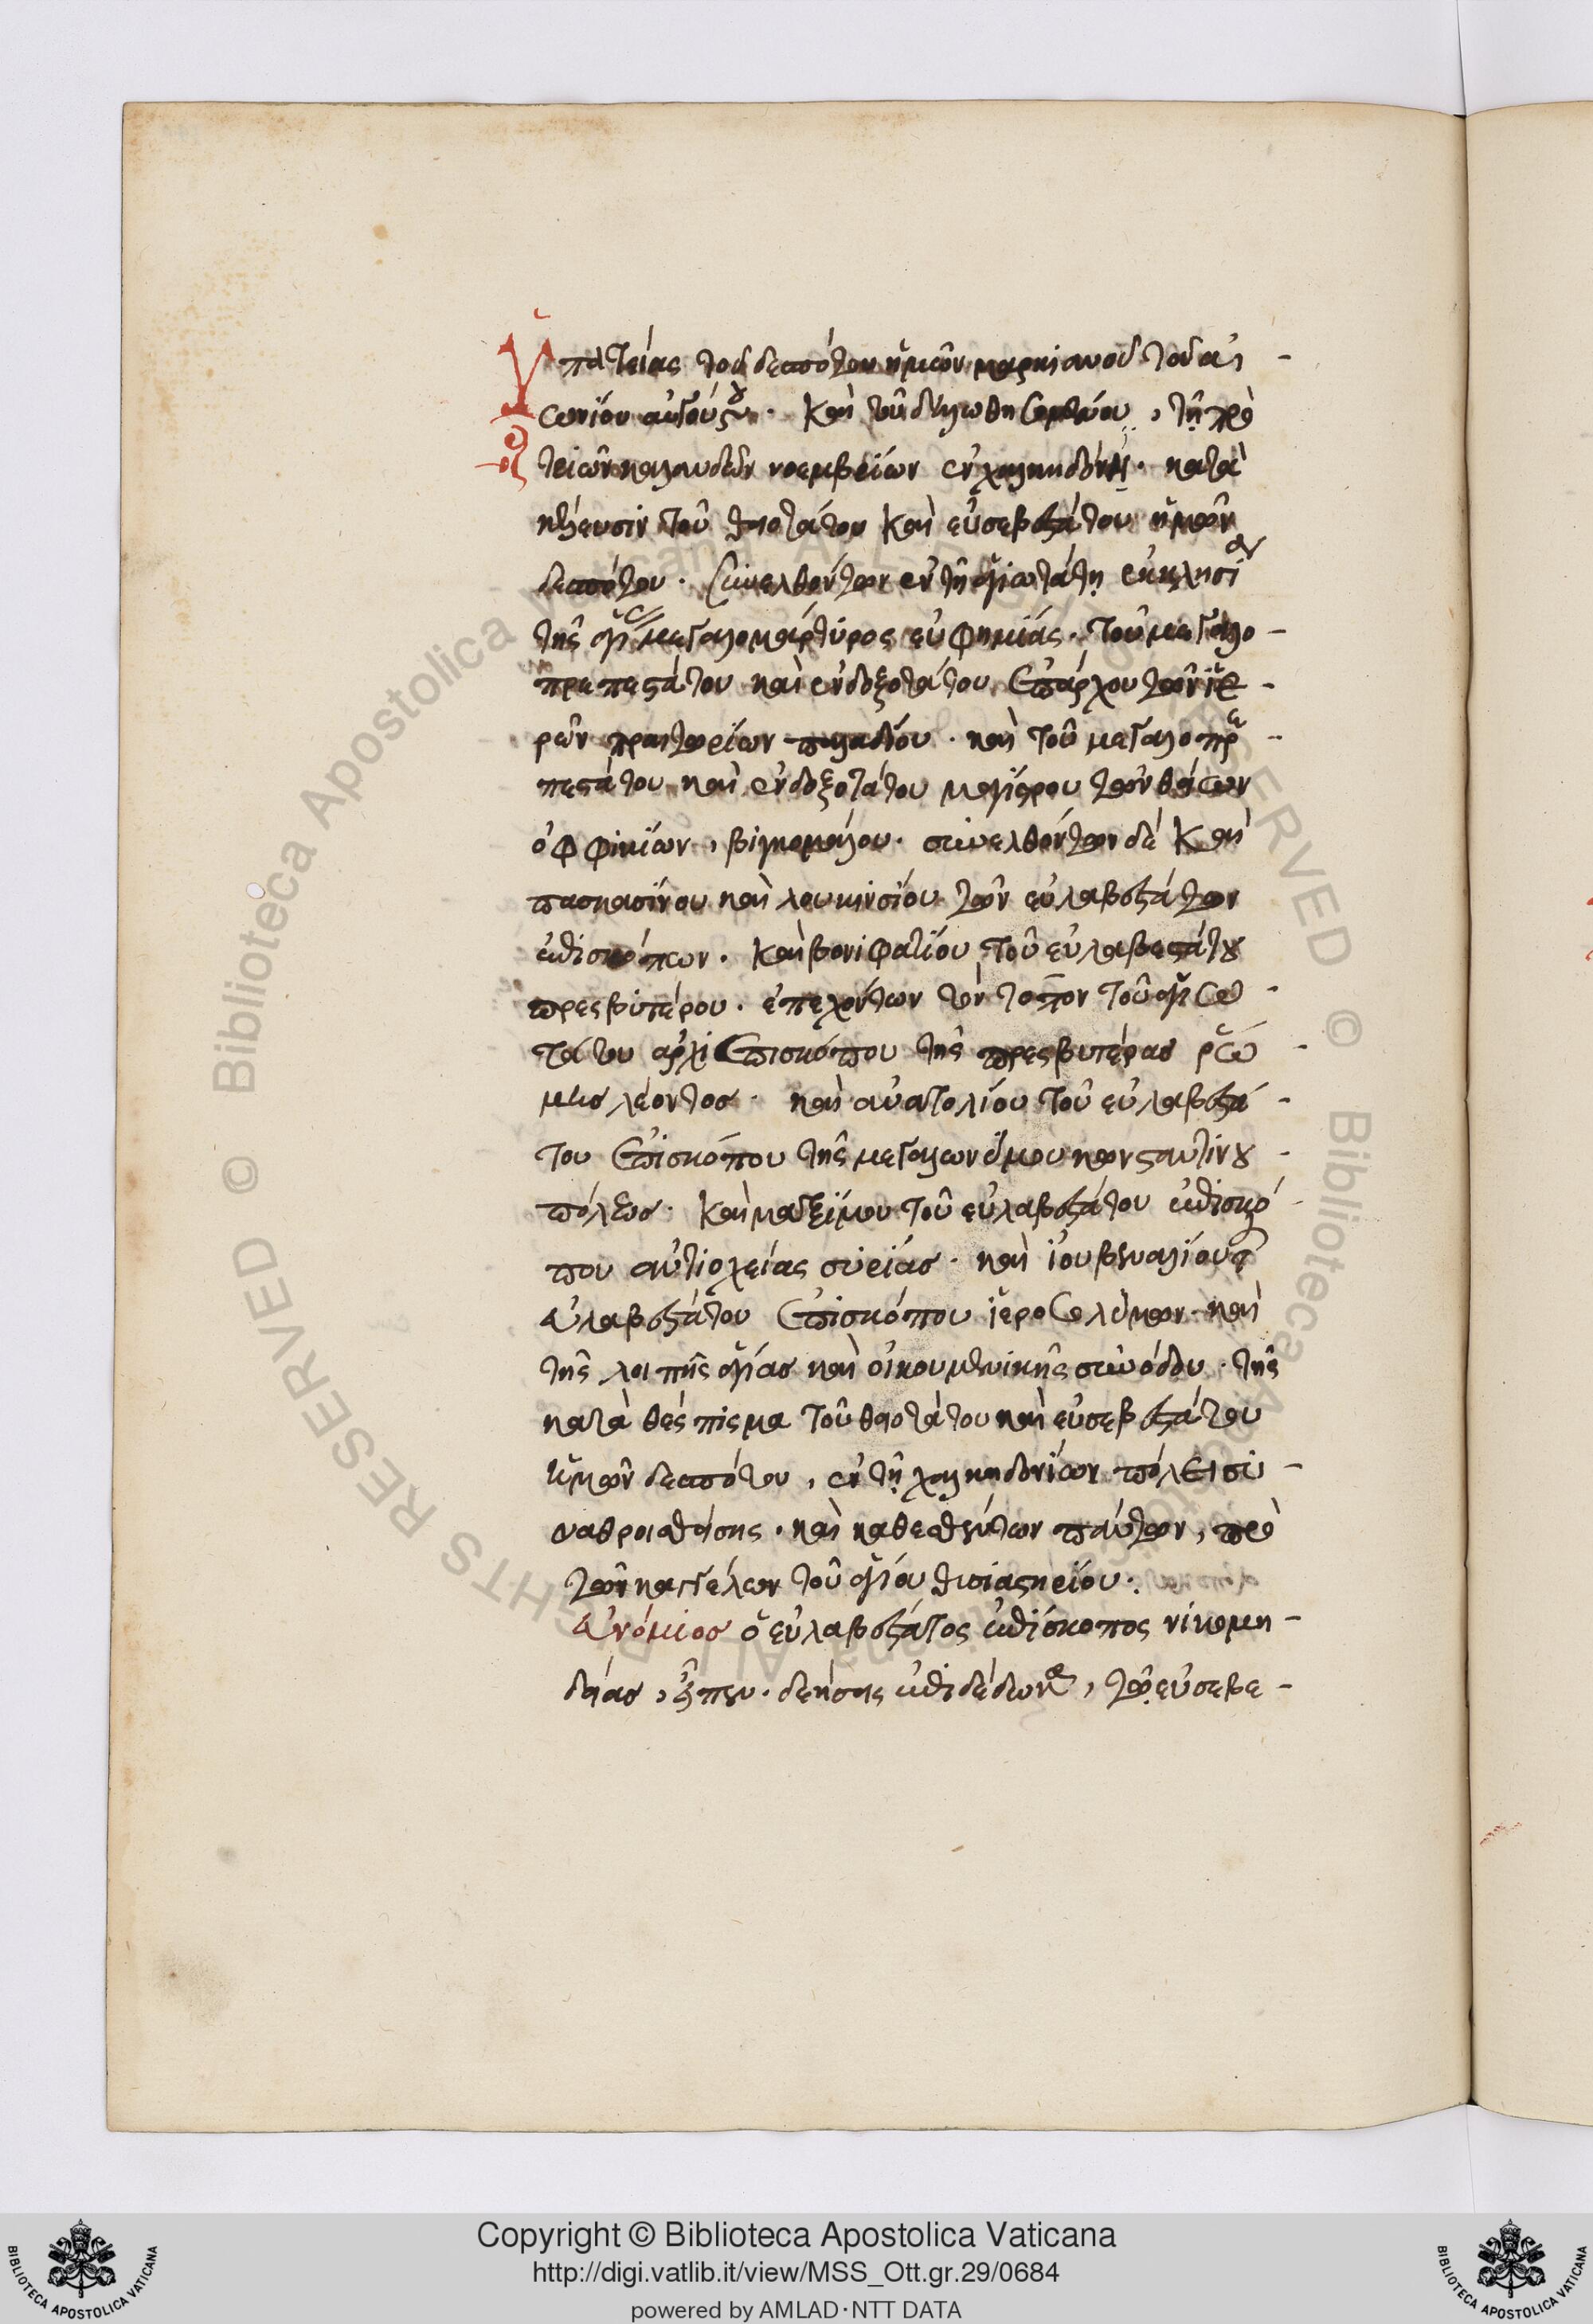 Ὑπατείας τοῦ δεσπότου ἡμῶν μαρκιανοῦ τοῦ αἰ-
ωνίου αὐγούστου. καὶ τοῦ δηλωθησομένου, τῇ πρὸ
τριῶν καλανδῶν νοεμβρίων ἐν χαλκηδόνι. κατὰ
κέλευσιν τοῦ θειοτάτου καὶ εὐσεβεστάτου ἡμῶν
δεσπότου. συνελθόντων ἐν τῇ ἁγιωτάτῃ ἐκκλησίᾳ
τῆς ἁγίας μεγαλομάρτυρος εὐφημίας. τοῦ μεγαλο-
πρεπεστάτου καὶ ἐνδοξοτάτου ἐπάρχου τῶν ἱε-
ρῶν πραιτωρίων παλαδίου. καὶ τοῦ μεγαλοπρε-
πεστάτου καὶ ἐνδοξοτάτου μαγίστρου τῶν θείων
ὀφφικίων, βιγκομάλου. συνελθόντων δὲ καὶ
πασκασίνου καὶ λουκινσίου τῶν εὐλαβεστάτων
ἐπισκόπων. καὶ βονιφατίου τοῦ εὐλαβεστάτου
πρεσβυτέρου. ἐπεχόντων τὸν τόπον τοῦ ἁγιω-
τάτου ἀρχιεπισκόπου τῆς πρεσβυτέρας ῥώ-
μης λέοντος. καὶ ἀνατολίου τοῦ εὐλαβεστά-
του ἐπισκόπου τῆς μεγαλωνύμου κωνσταντίνου-
πόλεως. καὶ μαξίμου τοῦ εὐλαβεστάτου ἐπισκό-
που ἀντιοχείας συρίας. καὶ ἰουβεναλίου τοῦ
εὐλαβεστάτου ἐπισκόπου ἱεροσολύμων. καὶ
τῆς λοιπῆς ἁγίας καὶ οἰκουμενικῆς συνόδου. τῆς
κατὰ θέσπισμα τοῦ θειοτάτου καὶ εὐσεβεστάτου
ἡμῶν δεσπότου, ἐν τῇ χαλκηδονίων πόλει συ-
ναθροισθείσης. καὶ καθεσθέντων πάντων, πρὸ
τῶν καγγέλων τοῦ ἁγίου θυσιαστηρίου.
εὐνόμιος ὁ εὐλαβεστάτος ἐπίσκοπος νικομη-
δείας, εἶπεν. δεήσεις ἐπιδέδωκα, τῷ εὐσεβε-
Copyright © Biblioteca Apostolica Vaticana
http://digi.vatlib.it/view/MSS_Ott.gr.29/0684
powered by AMLAD·NTT DATA